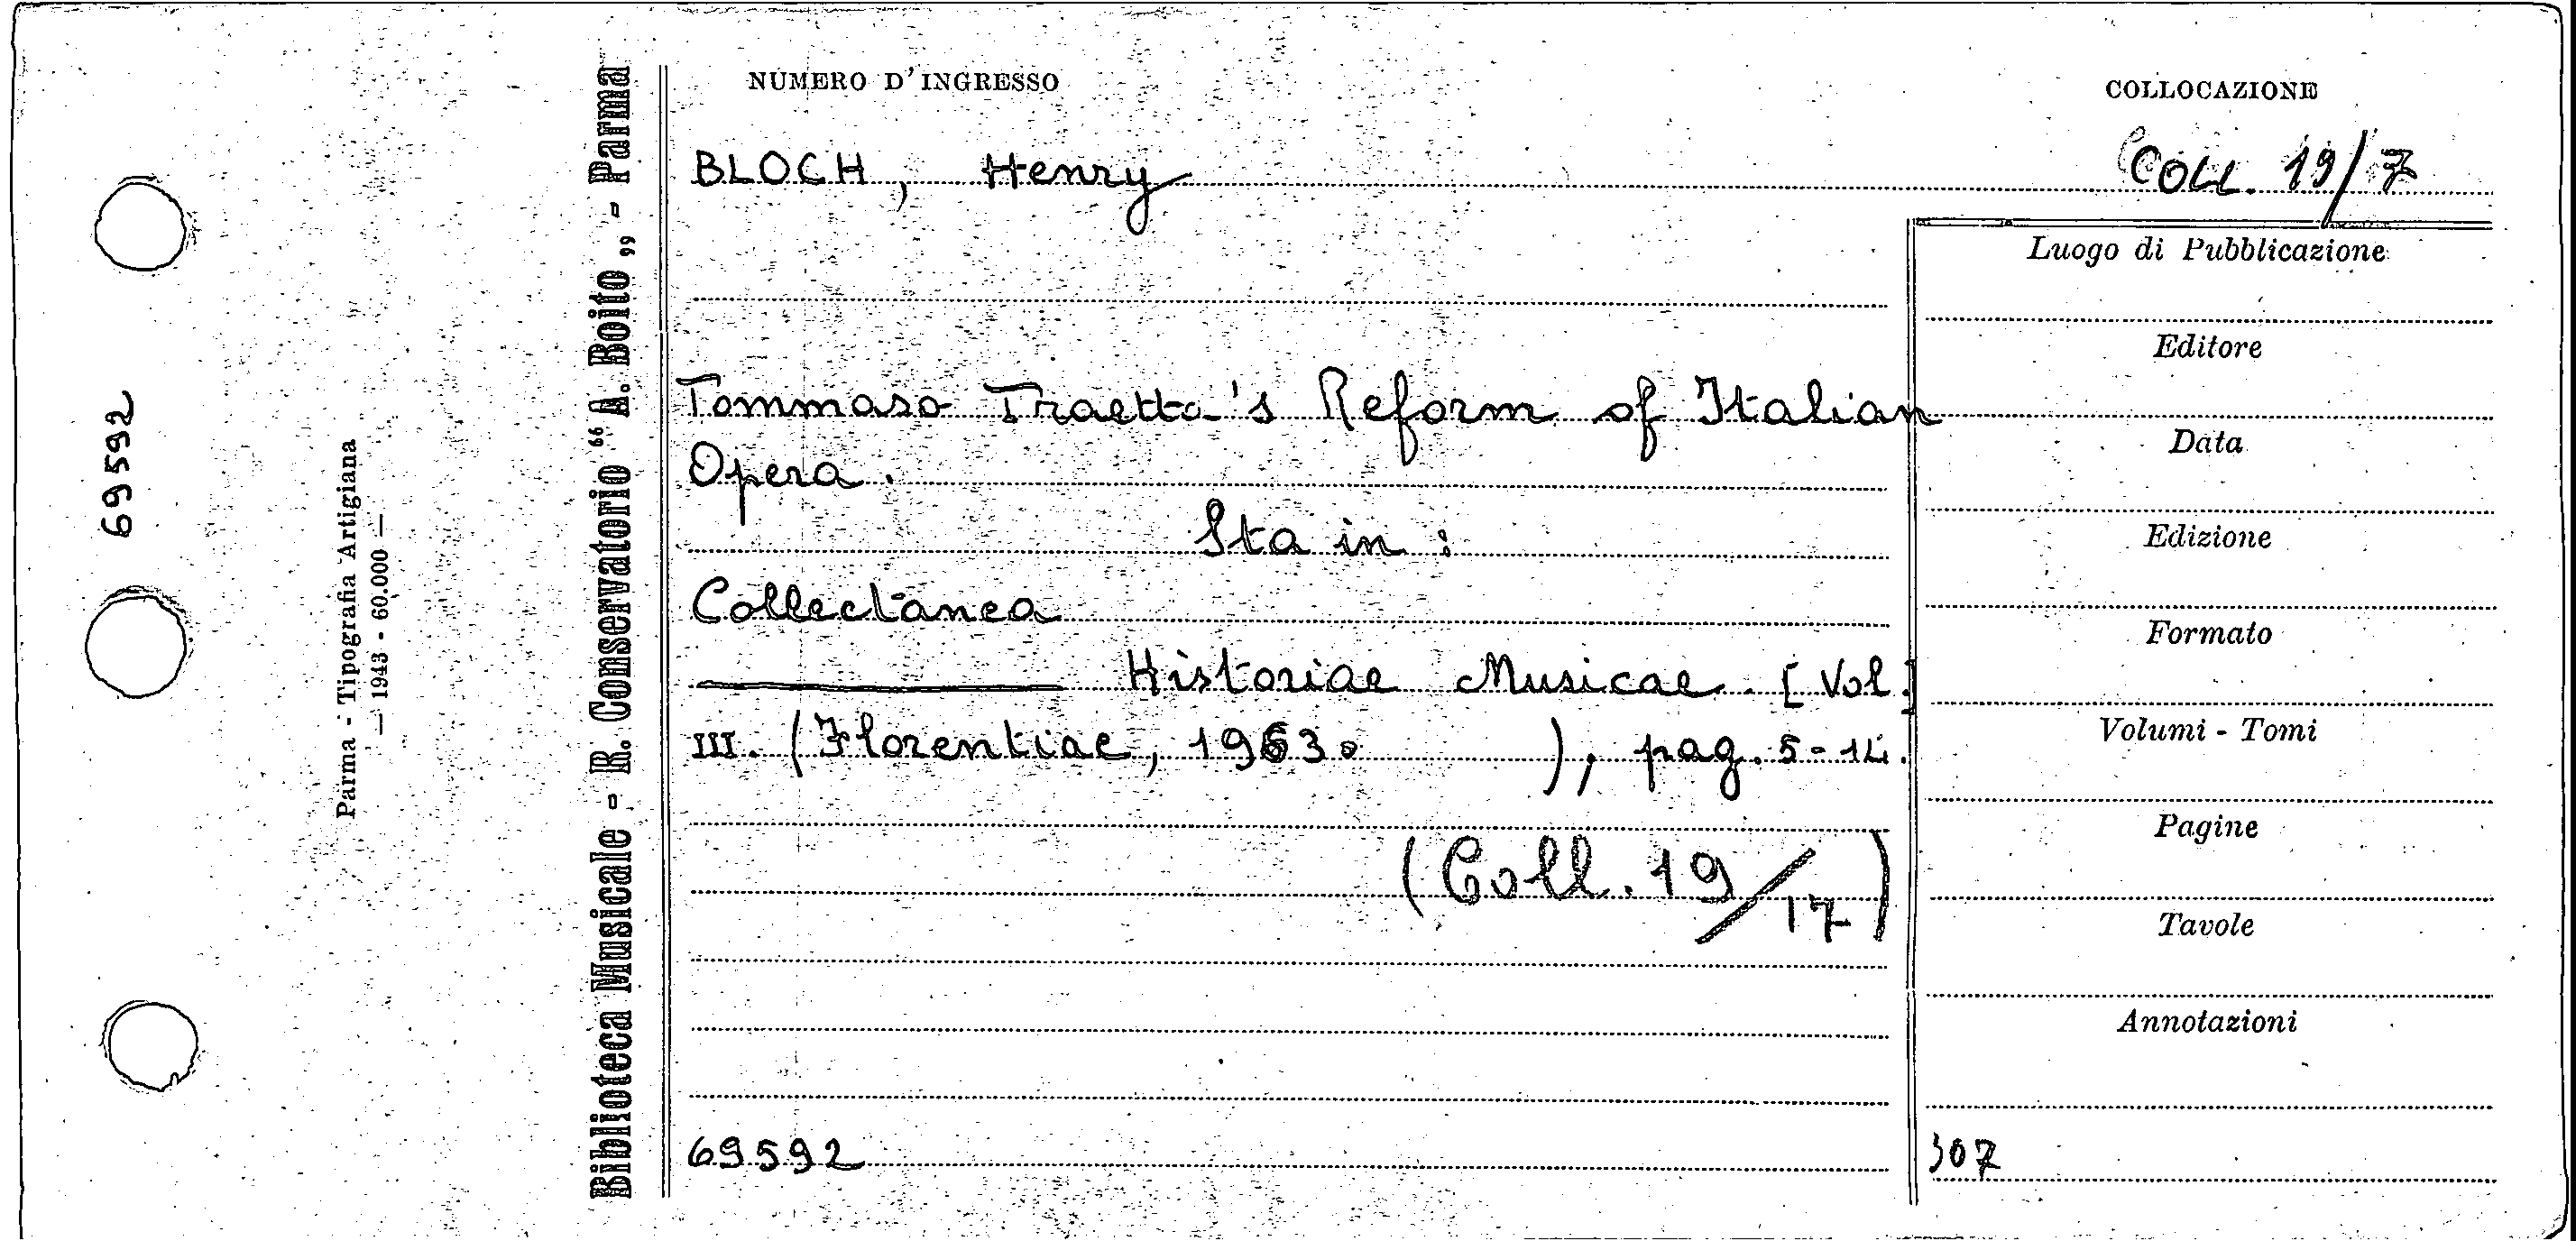 69592
Parma - Tipografia Artigiana
— 1943 - 60.000 —
Biblioteca Musicale - R. Conservatorio “A. Boito„ - Parma
NUMERO D'INGRESSO
COLLOCAZIONE
BLOCH, Henry
COLL. 19/7
Tommaso Traetta's Reform of Italian
Opera.
Sta in:
Collectanea
Historiae Musicae. [Vol.]
III. (Florentiae, 1963. ), pag. 5-14.
(Coll. 19/17)
69592
Luogo di Pubblicazione
Editore
Data
Edizione
Formato
Volumi - Tomi
Pagine
Tavole
Annotazioni
307